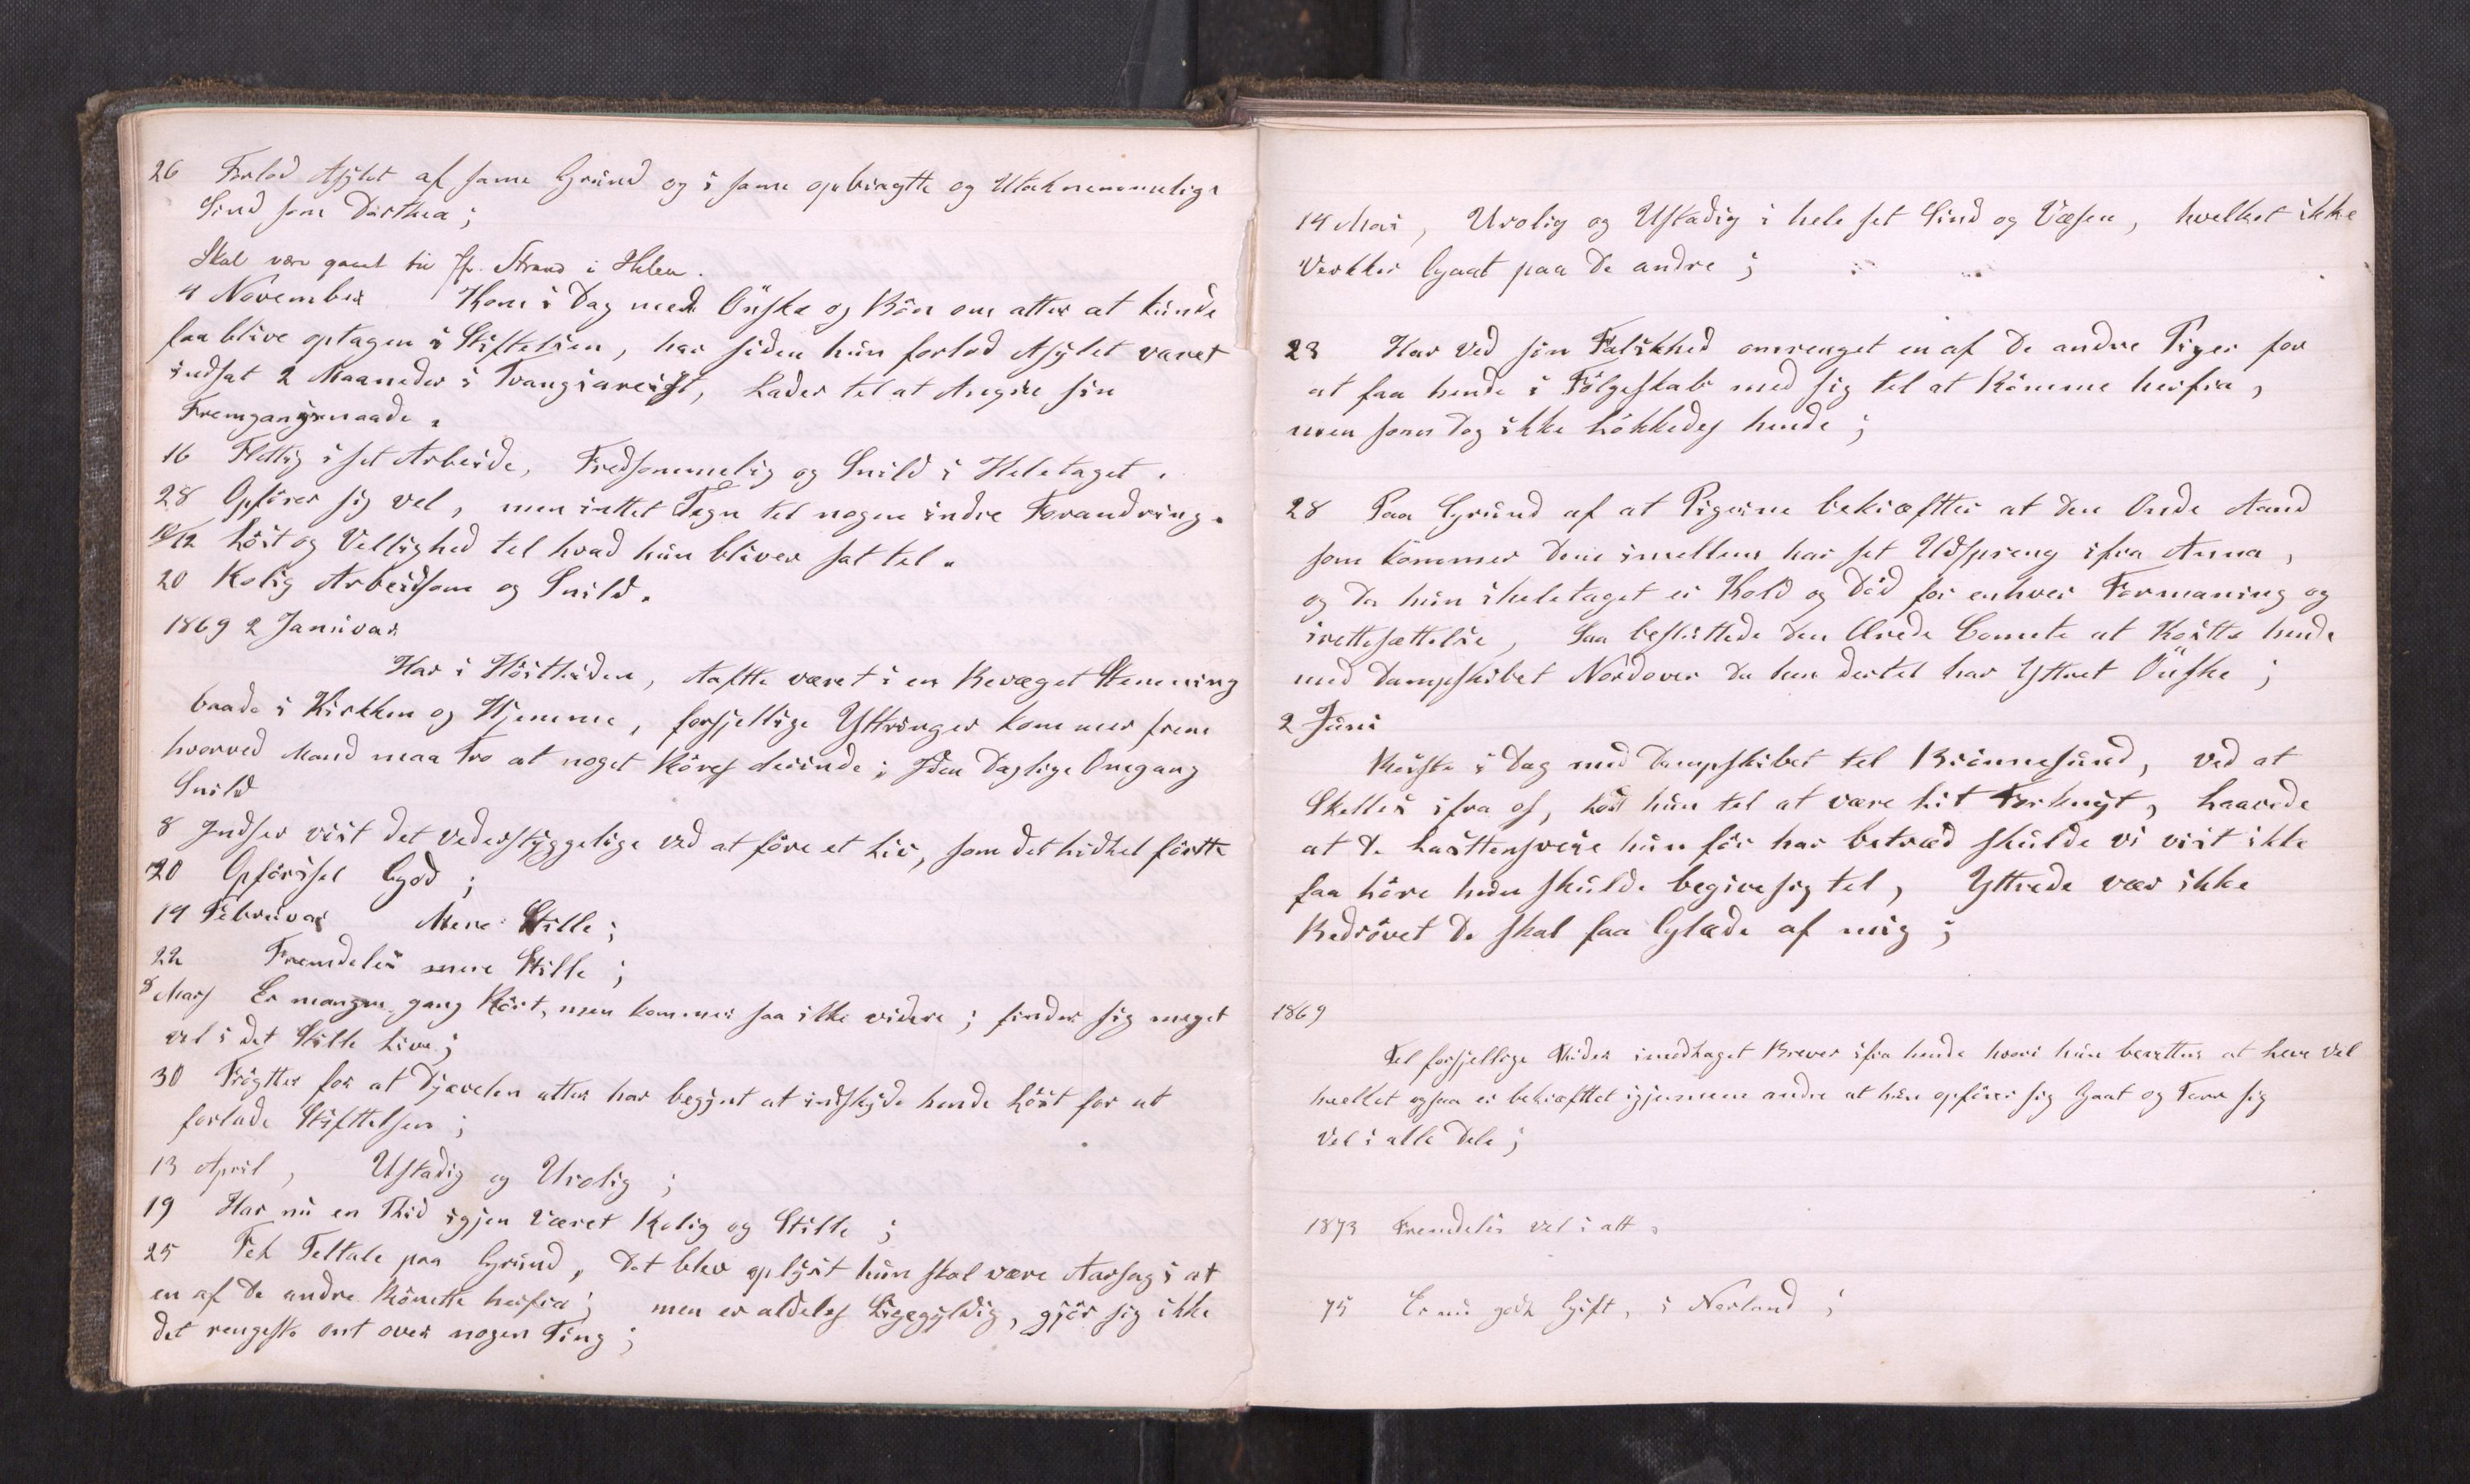 26 Forlod Asylet af same Grund og i same opbragtte og Utaknemmelige
Sind som Dårthea ;
Skal være gaaet til Fr. Strand i Holen .
4 November Kom i Dag med Önske og Bön om atter at kunde
faa blive optagen i Stiftelsen, har siden hun forlod Asylet varet
indsat 2 Maaneder i Tvangsareist, Lader tel at Angre sin
Fremgangsmaade .
16 Flettig i set Arbeide, Fredsommelig og Snild i Heletaget .
28 Opförer sig vel, men inttet Tegn tel nogen indre Forandring .
10/12 Löst og Vellighed tel hvad hun bliver sat tel .
20 Rolig Arbeidsom og Snild .
1869 2 Januvar
Har i Höittiden, Aaftte været i en Bevæget Stemning
baade i Kirkken og Hjemme, forsjellige Yttringer kommer frem
hvorved Mand maa Tro at noget Röres derinde ; Iden Daglige Omgang
Snild
8 Indser vist det vederstyggelige ved at före et Liv, som det hidtel förtte
20 Opförsel God ;
14 Februvar Mere Stille ;
22 Fremdeles mere Stille ;
8 Mars Er mangen gang Rört, men kommer saa ikke videre ; finder sig meget
vel i det Stille Live ;
30 Frögtter for at Djævelen atter har begynt at indskyde hende Löst for at
forlade Stifttelsen ;
13 April, Ustadig og Urolig ;
19 Har nu en Thid igjen Været Rolig og Stille ;
25 Fek Teltale paa Grund, Det blev oplyst hun skal være Aarsag i at
en af de andre Römtte herfra ; men er aldeles Ligegyldig, gjör sig ikke
det rengeste ont over nogen Ting ;
14 Mai, Urolig og Ustadig i hele set Sind og Væsen, hvelket ikke
Verkker Gaat paa De andre ;
23 Har ved sin Falskhed omrenget en af De andre Piger for
at faa hende i Fölgeskab med sig tel at Römme herfra,
men som Dog ikke Lökkedes hende ;
28 Paa Grund af at Pigerne bekræftter at Den Onde Aand
som kommer Dem imellem har set Udspreng ifra Anna,
og Da hun iheletaget er Kold og Död for enhver Formaning og
irettesættelse, Saa beslutttede Den Ærede Comete at Köstte hende
med Dampskibet Nordover Da hun dertel har Yttret Önske ;
2 Juni
Reiste i Dag med Dampskibet tel Brönnesund, ved at
Skelles ifra os, Lod hun tel at være Lit Forknyt,
at De Lasttensveie hun för har betræd skulde vi vist ikke
faa höre hun skulde begive sig tel, Yttrede vær ikke
Bedrövet De skal faa Glæde af mig ;
1869
Tel forsjellige Thider imodtaget Brever ifra hende hvori hun berettes at leve Vel
hvelket ogsaa er bekræfttet igjennem andre at hun opförer sig Gaat og Terer sig
Vel i alle Dele ;
1873 Fremdeles vel i alt .
75 Er nu godt Gift, i Norland ;